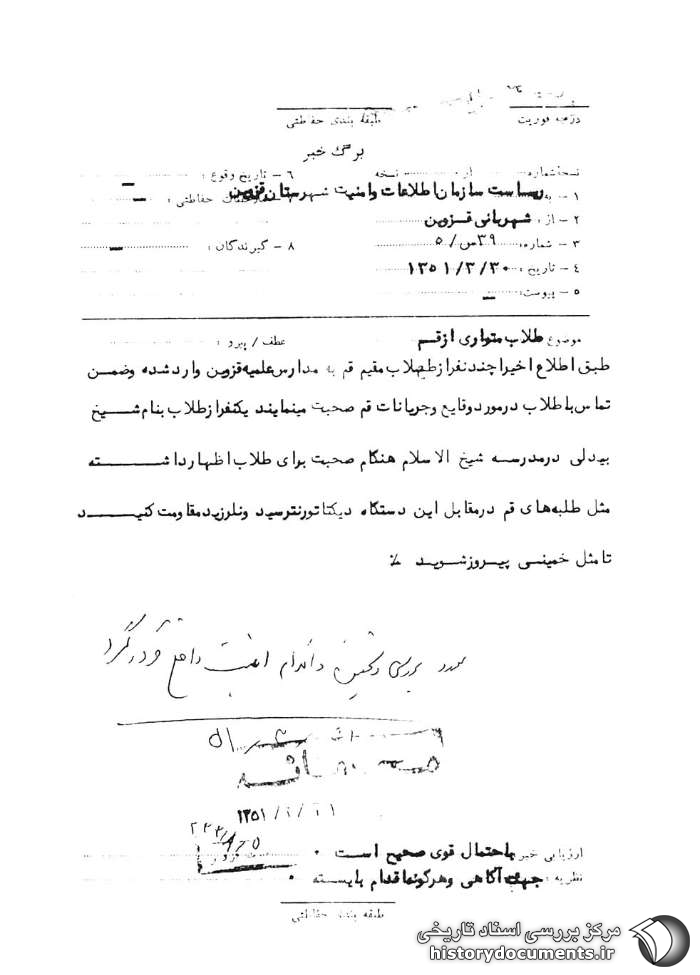 درجه فوریت طبقه بندی حفاظتی
برگ خبر
نسخه شماره از نسخه ۶ - تاریخ وقوع :
۱ - به ریاست سازمان اطلاعات وامنیت شهرستان قزوین حفاظتی :
۲ - از : شهربانی قزوین
۳ - شماره: ۳۹س/۵ ۸ - گیرندگان :
۴ - تاریخ : ۱۳۵۱/۳/۳۰
۵ - پیوست:
موضوع طلاب متواری ازقم عطف / پیرو :
طبق اطلاع اخیرا چندنفرازطلاب مقیم قم به مدارس علمیه قزوین وارد شده وضمن
تماس باطلاب درمورد وقایع وجریانات قم صحبت مینمایند یکنفرازطلاب بنام شیخ
بیدلی درمدرسه شیخ الاسلام هنگام صحبت برای طلاب اظهارداشته
مثل طلبه‌های قم درمقابل این دستگاه دیکتاتورنترسید ونلرزید مقاومت کنید
تامثل خمینی پیروزشوید ٪
بررسی
۱۳۵۱/
ارزیابی خبر باحتمال قوی صحیح است ۰
نظریه : جهت آگاهی وهرگونه اقدام بایسته ۰
طبقه بندی حفاظتی
مرکز بررسی اسناد تاریخی
historydocuments.ir